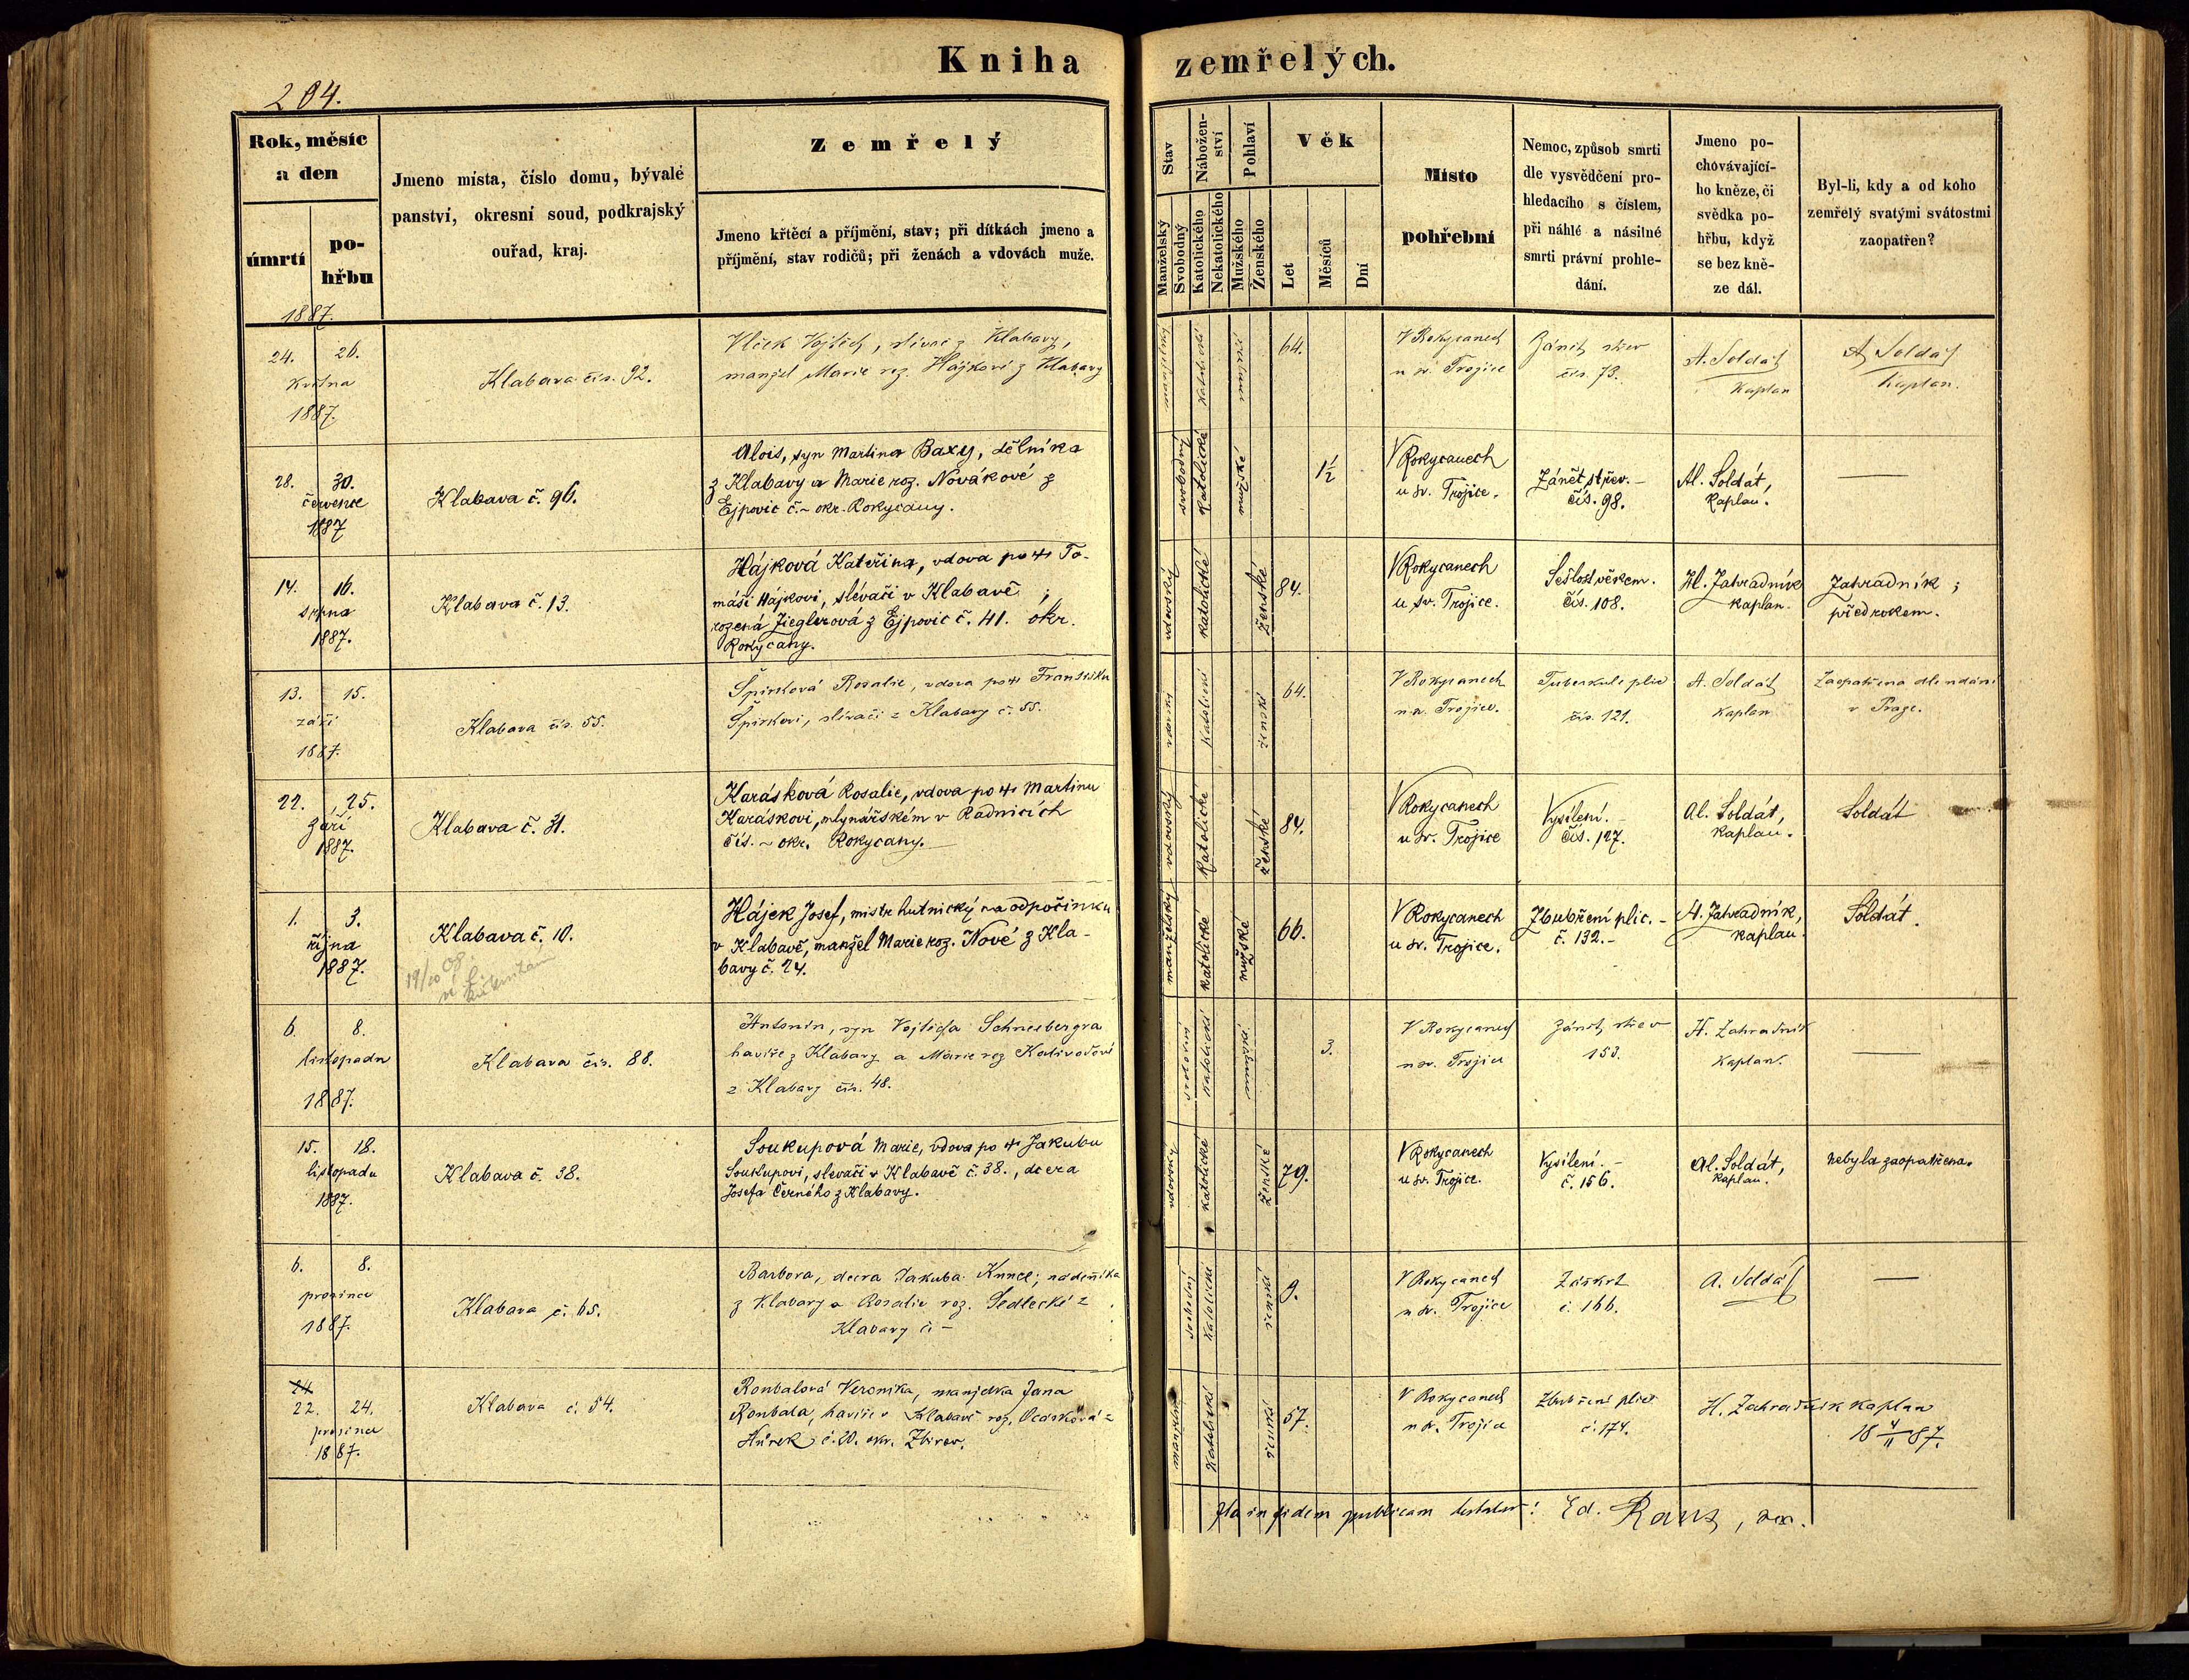 Kniha zemřelých.
204.
Rok, měsíc
a den
úmrtí
po-
hřbu
Jmeno místa, číslo domu, bývalé
panství, okresní soud, podkrajský
ouřad, kraj.
Zemřelý
Jmeno křtěcí a příjmění, stav; při dítkách jmeno a
příjmění, stav rodičů; při ženách a vdovách muže.
Stav
Manželský
Svobodný
Nábožen-
ství
Katolického
Nekatolického
Pohlaví
Mužského
Ženského
Věk
Let
Měsíců
Dní
Místo
pohřební
Nemoc, způsob smrti
dle vysvědčení pro-
hledacího s číslem,
při náhlé a násilné
smrti právní prohle-
dání.
Jmeno po-
chovávající-
ho kněze, či
svědka po-
hřbu, když
se bez kně-
ze dál.
Byl-li, kdy a od koho
zemřelý svatými svátostmi
zaopatřen?
1887.
24. 26.
května
1887.
Klabava čís. 92.
Vlček Vojtěch, slévač z Klabavy,
manžel Marie roz. Hájkovi z Klabavy
manželský
katolické
mužské
64.
V Rokycanech
u sv. Trojice
Zánět střev
čís. 73.
A. Soldát
Kaplan
A. Soldát
Kaplan.
28. 30.
července
1887
Klabava č. 96.
Alois, syn Martina Baxy, dělníka
z Klabavy a Marie roz. Novákové z
Ejpovic č. ~ okr. Rokycany.
svobodný
katolické
mužské
1½
V Rokycanech
u sv. Trojice.
Zánět střev. -
čís. 98.
Al. Soldát,
kaplan.
—
14. 16.
srpna
1887.
Klabava č. 13.
Hájková Kateřina, vdova po † To-
máši Hájkovi, slévači v Klabavě,
rozená Zieglerová z Ejpovic č. 41. okr.
Rokycany.
vdovský
katolické
ženské
84.
V Rokycanech
u sv. Trojice.
Sešlost věkem.
čís. 108.
H. Zahradník
kaplan.
Zahradník;
před rokem.
13. 15.
září
1887.
Klabava čís. 55.
Špirková Rosalie, vdova po † Františku
Špirkovi, slévači z Klabavy č. 55.
vdovský
katolické
ženské
64.
V Rokycanech
u sv. Trojice.
Tuberkule plic
čís. 121.
A. Soldát
Kaplan
Zaopatřena dle udání
v Praze.
22. 25.
září
1887.
Klabava č. 31.
Karásková Rosalie, vdova po † Martinu
Karáskovi, mlynářském v Radnicích
čís. ~ okr. Rokycany.
vdovský
katolické
ženské
84.
V Rokycanech
u sv. Trojice
Vysílení. -
čís. 127.
Al. Soldát,
kaplan.
Soldát
1. 3.
října
1887.
Klabava č. 10.
19/10 08
Hájek Josef, mistr hutnický na odpočinku
v Klabavě, manžel Marie roz. Nové z Kla-
bavy č. 24.
manželský
katolické
mužské
66.
V Rokycanech
u sv. Trojice.
Zbubření plic. -
č. 132. -
H. Zahradník,
kaplan.
Soldát.
6. 8.
listopadu
1887.
Klabava čís. 88.
Antonín, syn Vojtěcha Schneebergra
havíře z Klabavy a Marie roz Kalivodové
z Klabavy čís. 48.
svobodný
katolické
mužské
3.
V Rokycanech
u sv. Trojice
Zánět střev
153.
H. Zahradník
Kaplan.
—
15. 18.
listopadu
1887.
Klabava č. 38.
Soukupová Marie, vdova po † Jakubu
Soukupovi, slevači v Klabavě č. 38., dcera
Josefa Černého z Klabavy.
vdovský
katolické
ženské
79.
V Rokycanech
u sv. Trojice.
Vysílení. -
č. 156.
Al. Soldát,
kaplan.
nebyla zaopatřena.
6. 8.
prosince
1887.
Klabava č. 65.
Barbora, dcera Jakuba Kunce, nádeníka
z Klabavy a Rosalie roz. Sedlecké z
Klabavy č. -
svobodný
katolické
ženské
9.
V Rokycanech
u sv. Trojice
Záškrt
č. 166.
A. Soldát
—
24
22. 24.
prosince
1887.
Klabava č. 54.
Roubalová Veronika, manželka Jana
Roubala, havíře v Klabavě roz. z
Hůrek č. 20. okr. Zbirov.
katolické
ženské
57.
V Rokycanech
u sv. Trojice
Zbubření plic
č. 174.
H. Zahradník kaplan
18 4/11 87.
Ita in fidem publicam testatur: Ed.